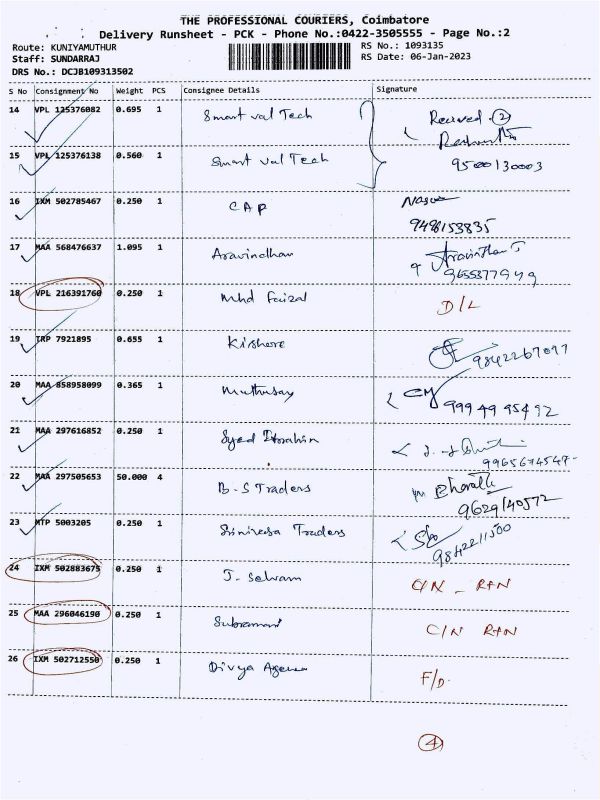 THE PROFESSIONAL COURIERS, Coimbatore
Delivery Runsheet - PCK - Phone No.:0422-3505555 - Page No.:2
Route: KUNIYAMUTHUR RS No.: 1093135
Staff: SUNDARRAJ RS Date: 06-Jan-2023
DRS No.: DCJB109313502
S No Consignment No Weight PCS Consignee Details Signature
14 VPL 125376082 0.695 1 Smart val Tech Received (2)
15 VPL 125376138 0.560 1 Smart val Tech 9500130003
16 IXM 502785467 0.250 1 CAP
9486153835
17 MAA 568476637 1.095 1 Aravindhan Aravindhan
9655377949
18 VPL 216391760 0.250 1 Mhd Faizal D/L
19 TRP 7921895 0.655 1 Kishore 9842267097
20 MAA 858958099 0.365 1 Muthusay
99949 95492
21 MAA 297616852 0.250 1 Syed Ibrahim
9965674547
22 MAA 297505653 50.000 4 B.S Traders Bharathi
9629140572
23 MTP 5003205 0.250 1 Srinivasa Traders
9842211500
24 IXM 502883675 0.250 1 J. Selvam C/N - R+N
25 MAA 296046190 0.250 1 Subramani C/N R+N
26 IXM 502712550 0.250 1 Divya F/D.
4